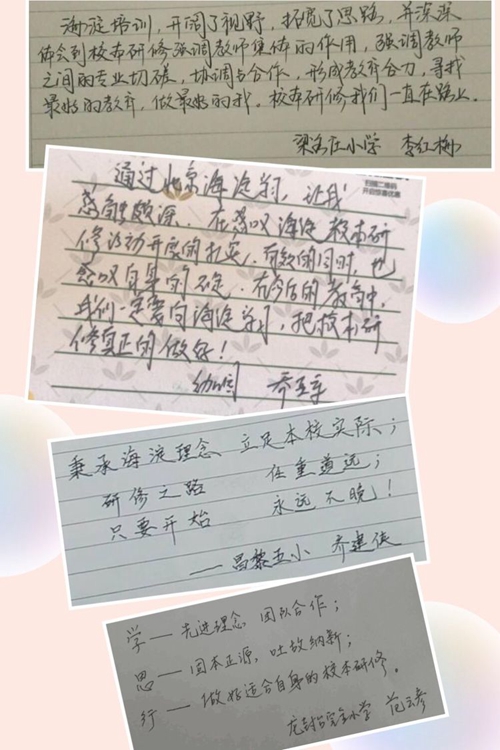 海淀培训，开阔了视野，拓宽了思路，并深深
体会到校本研修强调教师集体的作用，强调教师
之间的专业切磋，协调与合作，形成教育合力，寻找
最好的教育，做最好的我。校本研修我们一直在路上。
梁各庄小学 李红梅
扫描二维码
通过北京海淀学习，让我
感触颇深。在感叹海淀校本研
修活动开展的扎实、有效的同时，也
感叹自身的不足。在今后的教育中，
我们一定要向海淀学习，把校本研
修真正的做好！
乔
秉承海淀理念 立足本校实际；
研修之路 任重道远；
只要开始 永远不晚！
——昌黎五小 齐建侠
学——先进理念 团队合作；
思——固本正源，吐故纳新；
行——做好适合自身的校本研修。
完全小学 范云彦